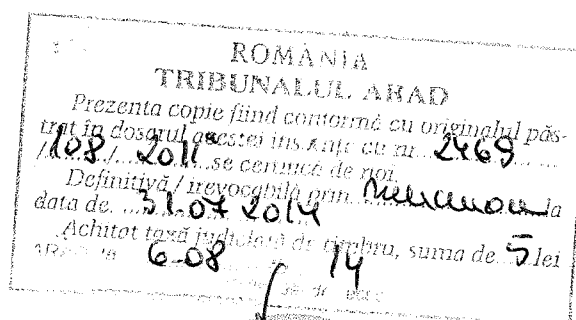 ROMÂNIA
TRIBUNALUL ARAD
Prezenta copie fiind conformă cu originalul păs-
trat în dosarul acestei instanțe cu nr. 2469
/108/ 2011* se certifică de noi.
Definitivă / irevocabilă prin la
data de 31.07 2014
Achitat taxă judiciară de timbru, suma de 5 lei
6.08 14